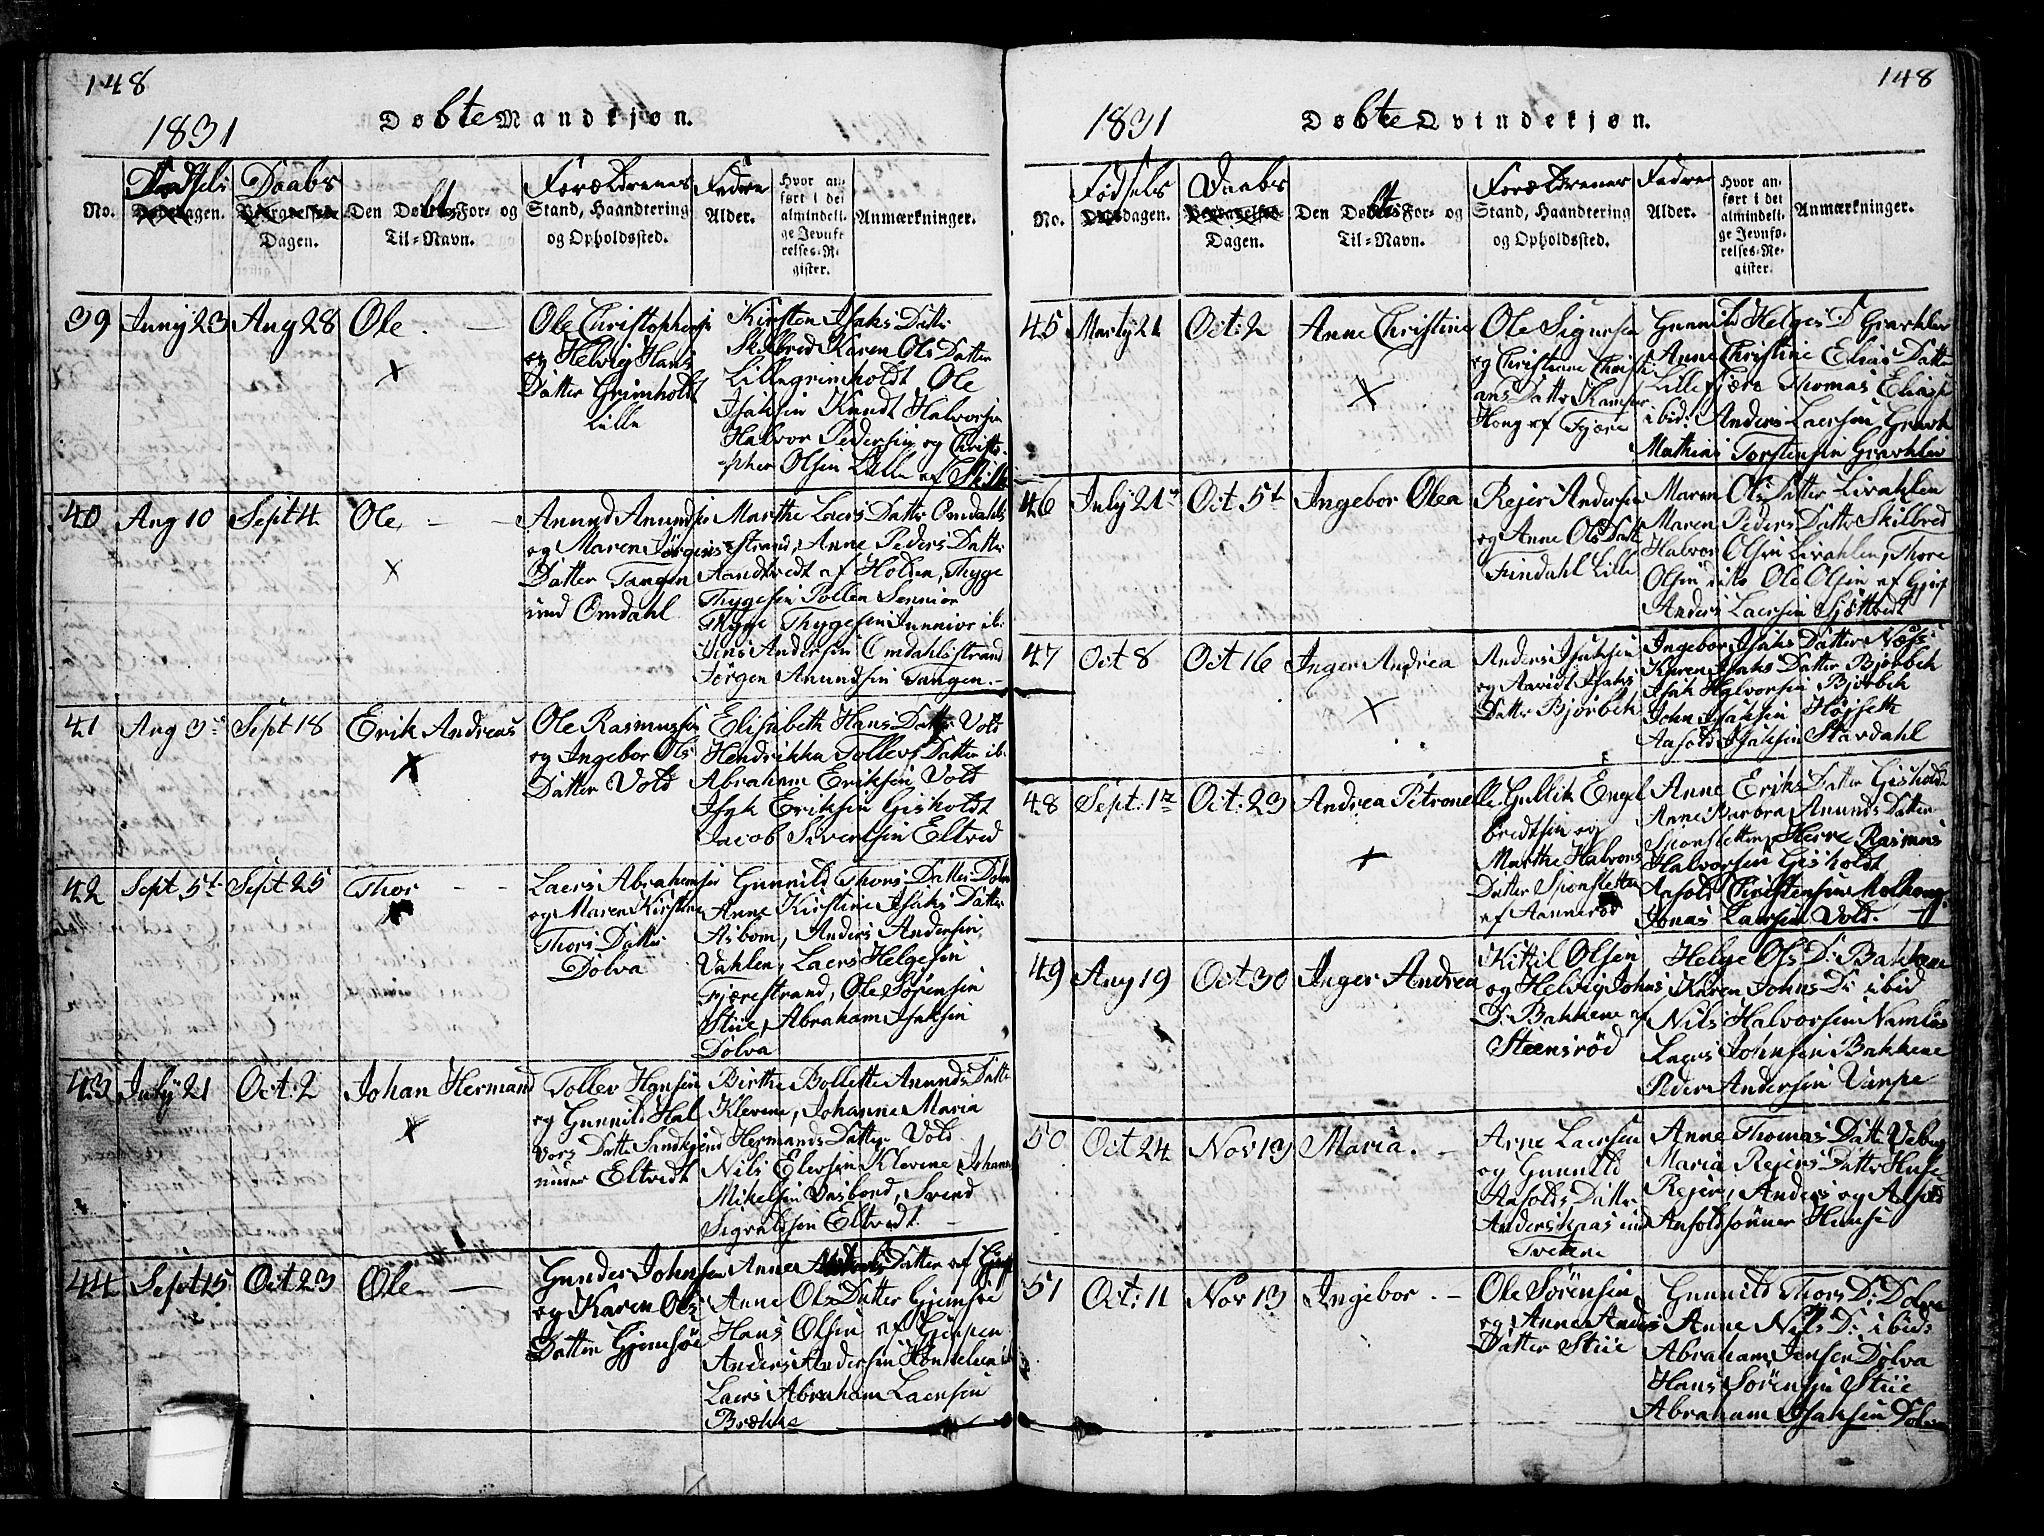 148
1831
Døbte Mandkjøn.
No.
Fødsels
dagen.
Daabs
Dagen.
Den Døbtes For- og
Til-Navn.
Forældrenes
Stand, Haandtering
og Opholdssted.
Fadre
Alder.
Hvor an-
ført i det
almindeli-
ge Jevnfø-
relses-Re-
gister.
Anmærkninger.
39
Juny 23
Aug 28
Ole
Ole Christophersen
og Helvig Hans
Datter Grimholdt
Lille
Kirsten Isaks Datter
Skilbred Karen Ols Datter
Lillegrimholdt Ole
Isaksen Knudt Halvorsen
Halvor Pedersen og Christo-
pher Olsen Lille
40
Aug 10
Sept 4
Ole
Anund Anundsen
og Maren Jörgens
Datter Tangen
und Omdahl
Marthe Laers Datter Omdahls
strand, Anne Peders Datter
af Holden, Thyge
Thygesen Pollen Sennior
Thyge Thygesen Junnior ib:
Jens Andersen Omdahlsstrand
Jörgen Anundsen Tangen.
41
Aug 3
Sept 18
Erik Andreas
Ole Rasmussen
og Ingebor Ols
Datter Vold
Elisabeth Hans Datter Vold
Hendrikka Tollefs Datter ib.
Abraham Eriksen Vold
Isak Eriksen Gisholdt
Jacob Sivertsen Eltved
42
Sept 5t
Sept 25
Thor
Laers Abrahamsen
og Maren Kirstine
Thors Datter
Dolva
Gunnild Thors Datter Dolva
Anne Kirstine Isaks Datter
Asbom, Anders Andersen
Vahlen, Laers Helgesen
Fjærestrand, Ole Sørensen
Stiie, Abraham Isaksen
Dolva
43
July 21
Oct: 2
Johan Hermand
Tollev Hansen
og Gunnild Hal
vors Datter
under Eltvedt
Birthe Bollette Anunds Datter
Klevene, Johanne Maria
Hermands Datter Vold
Nils Elevsen Klevene Johan
Mikelsen, Svend
Sigvaldsen Eltvedt
44
Sept 15
Oct 23
Ole
Gunder Johnsen
og Karen Ols
Datter Gjemsöe
Anne Datter af
Anne Ols Datter Gjemsöe
Hans Olsen af Gjerpen
Anders Andersen
Laers Abraham Laersen
Brække
148
1831
Døbte Qvindekjøn.
No.
Fødsels
dagen.
Daabs
Dagen.
Den Døbtes For- og
Til-Navn.
Forældrenes
Stand, Haandtering
og Opholdssted.
Fadre
Alder.
Hvor an-
ført i det
almindeli-
ge Jevnfø-
relses-Re-
gister.
Anmærkninger.
45
Marty 21
Oct: 2
Anne Christine
Ole Sigursen
og Christiane Christi
ans Datter
af Fjære
Gunnild Helges D
Anne Christine Elias Datter
Lille Fjære Thomas Elias
ibid: Anders Laersen
Mathias Torstensen
46
July 21
Oct 5t
Ingebor Olea
Rejer Andersen
og Anne Ols Datt
Findahl Lille
Maren Ols Datter Livahlen
Maren Peders Datter Skilbred
Halvor Olsen Livahlen, Thore
Olsen dito Ole Olsen af
Anders Laersen
47
Oct 8
Oct 16
Inger Andrea
Anders Isaksen
og Isaks
Datter Bjorbek
Ingebor Isaks Datter Næss
Karen Isaks Datter Bjorbek
Isak Halvorsen Bjorbek
John Isaksen Højsett
Aasold Isaksen Stavdahl
48
Sept: 12
Oct: 23
Andrea Petronelle
Gullik Engel
bredtsen og
Marthe Halvors
Datter
af Aannerød
Anne Eriks Datter Gisholdt
Anne Barbra Anunds Datter
Herre Rasmus
Halvorsen Gisholdt
Aasold Christensen Melhong
Jonas Laersen Vold.
49
Aug 19
Oct: 30
Inger Andrea
Kittil Olsen
og Helvig Johns
D: Bakkene af
Steensrød
Helge Ols D: Bakkene
Karen Johns D: ibid
Nils Halvorsen
Laers Johnsen Bakkene
Peder Andersen
50
Oct 24
Nov 13
Maria.
Arne Laersen
og Gunnild
Aasolds Datter
Anderskaas und
Tvetene
Anne Thomas Datter
Maria Rejers Datter
Rejer, Anders og Aasold
Aasoldsønner
51
Oct: 11
Nov 13
Ingebor.
Ole Sörensen
og Anne Anders
Datter Stiie
Gunnild Thors D: Dolva
Anne Nils D: ibid:
Abraham Jensen Dolva
Hans Sörensen Stiie
Abraham Isaksen Dolva